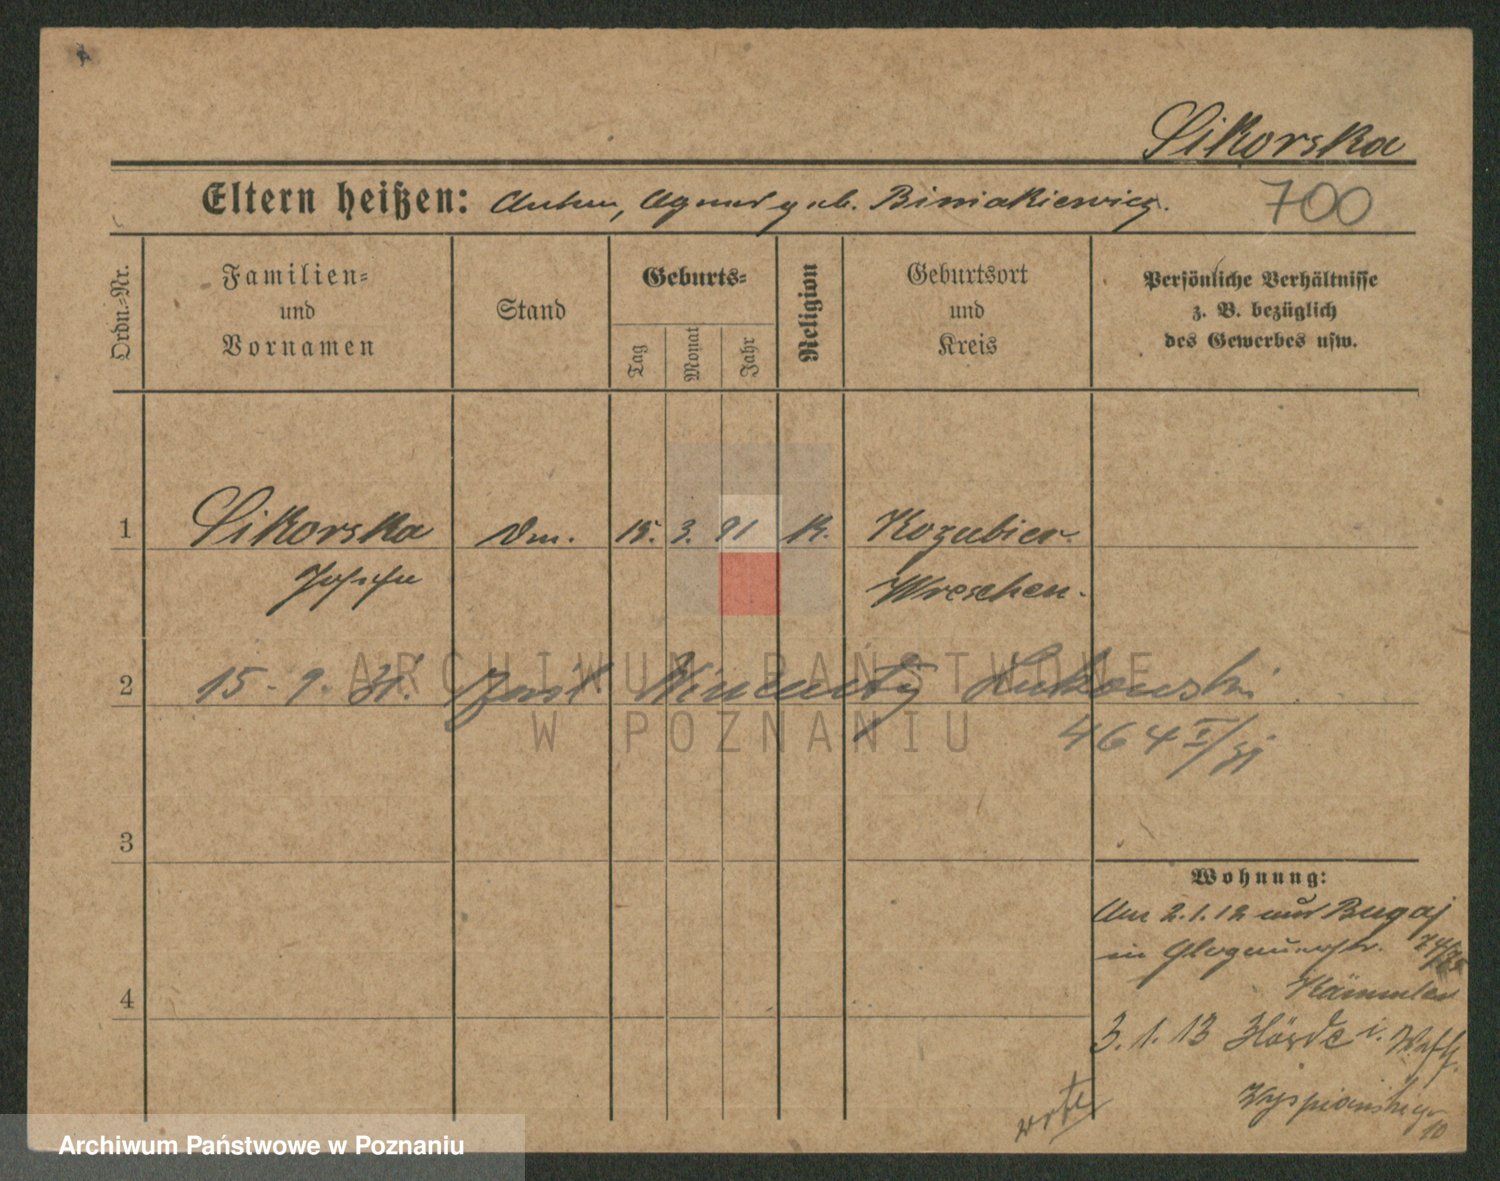 Sikorska
Eltern heißen: Anton, Agnes geb. Biniakiewicz. 700
Ordn.-Nr.
Familien-
und
Vornamen
Stand
Geburts-
Tag
Monat
Jahr
Religion
Geburtsort
und
Kreis
Persönliche Verhältnisse
z. B. bezüglich
des Gewerbes usw.
1 Sikorska 15. 3. 91 K.
Wreschen.
2 15. 9. 31. Wincenty Lukowski
464 I/31
3
4
Wohnung:
Am 2.1.12 aus Bugaj
in Glogauerstr.
Kämmler
3.1.13 Hörde i. Westf.
Wyspiańskiego
10
ARCHIWUM PAŃSTWOWE
W POZNANIU
Archiwum Państwowe w Poznaniu